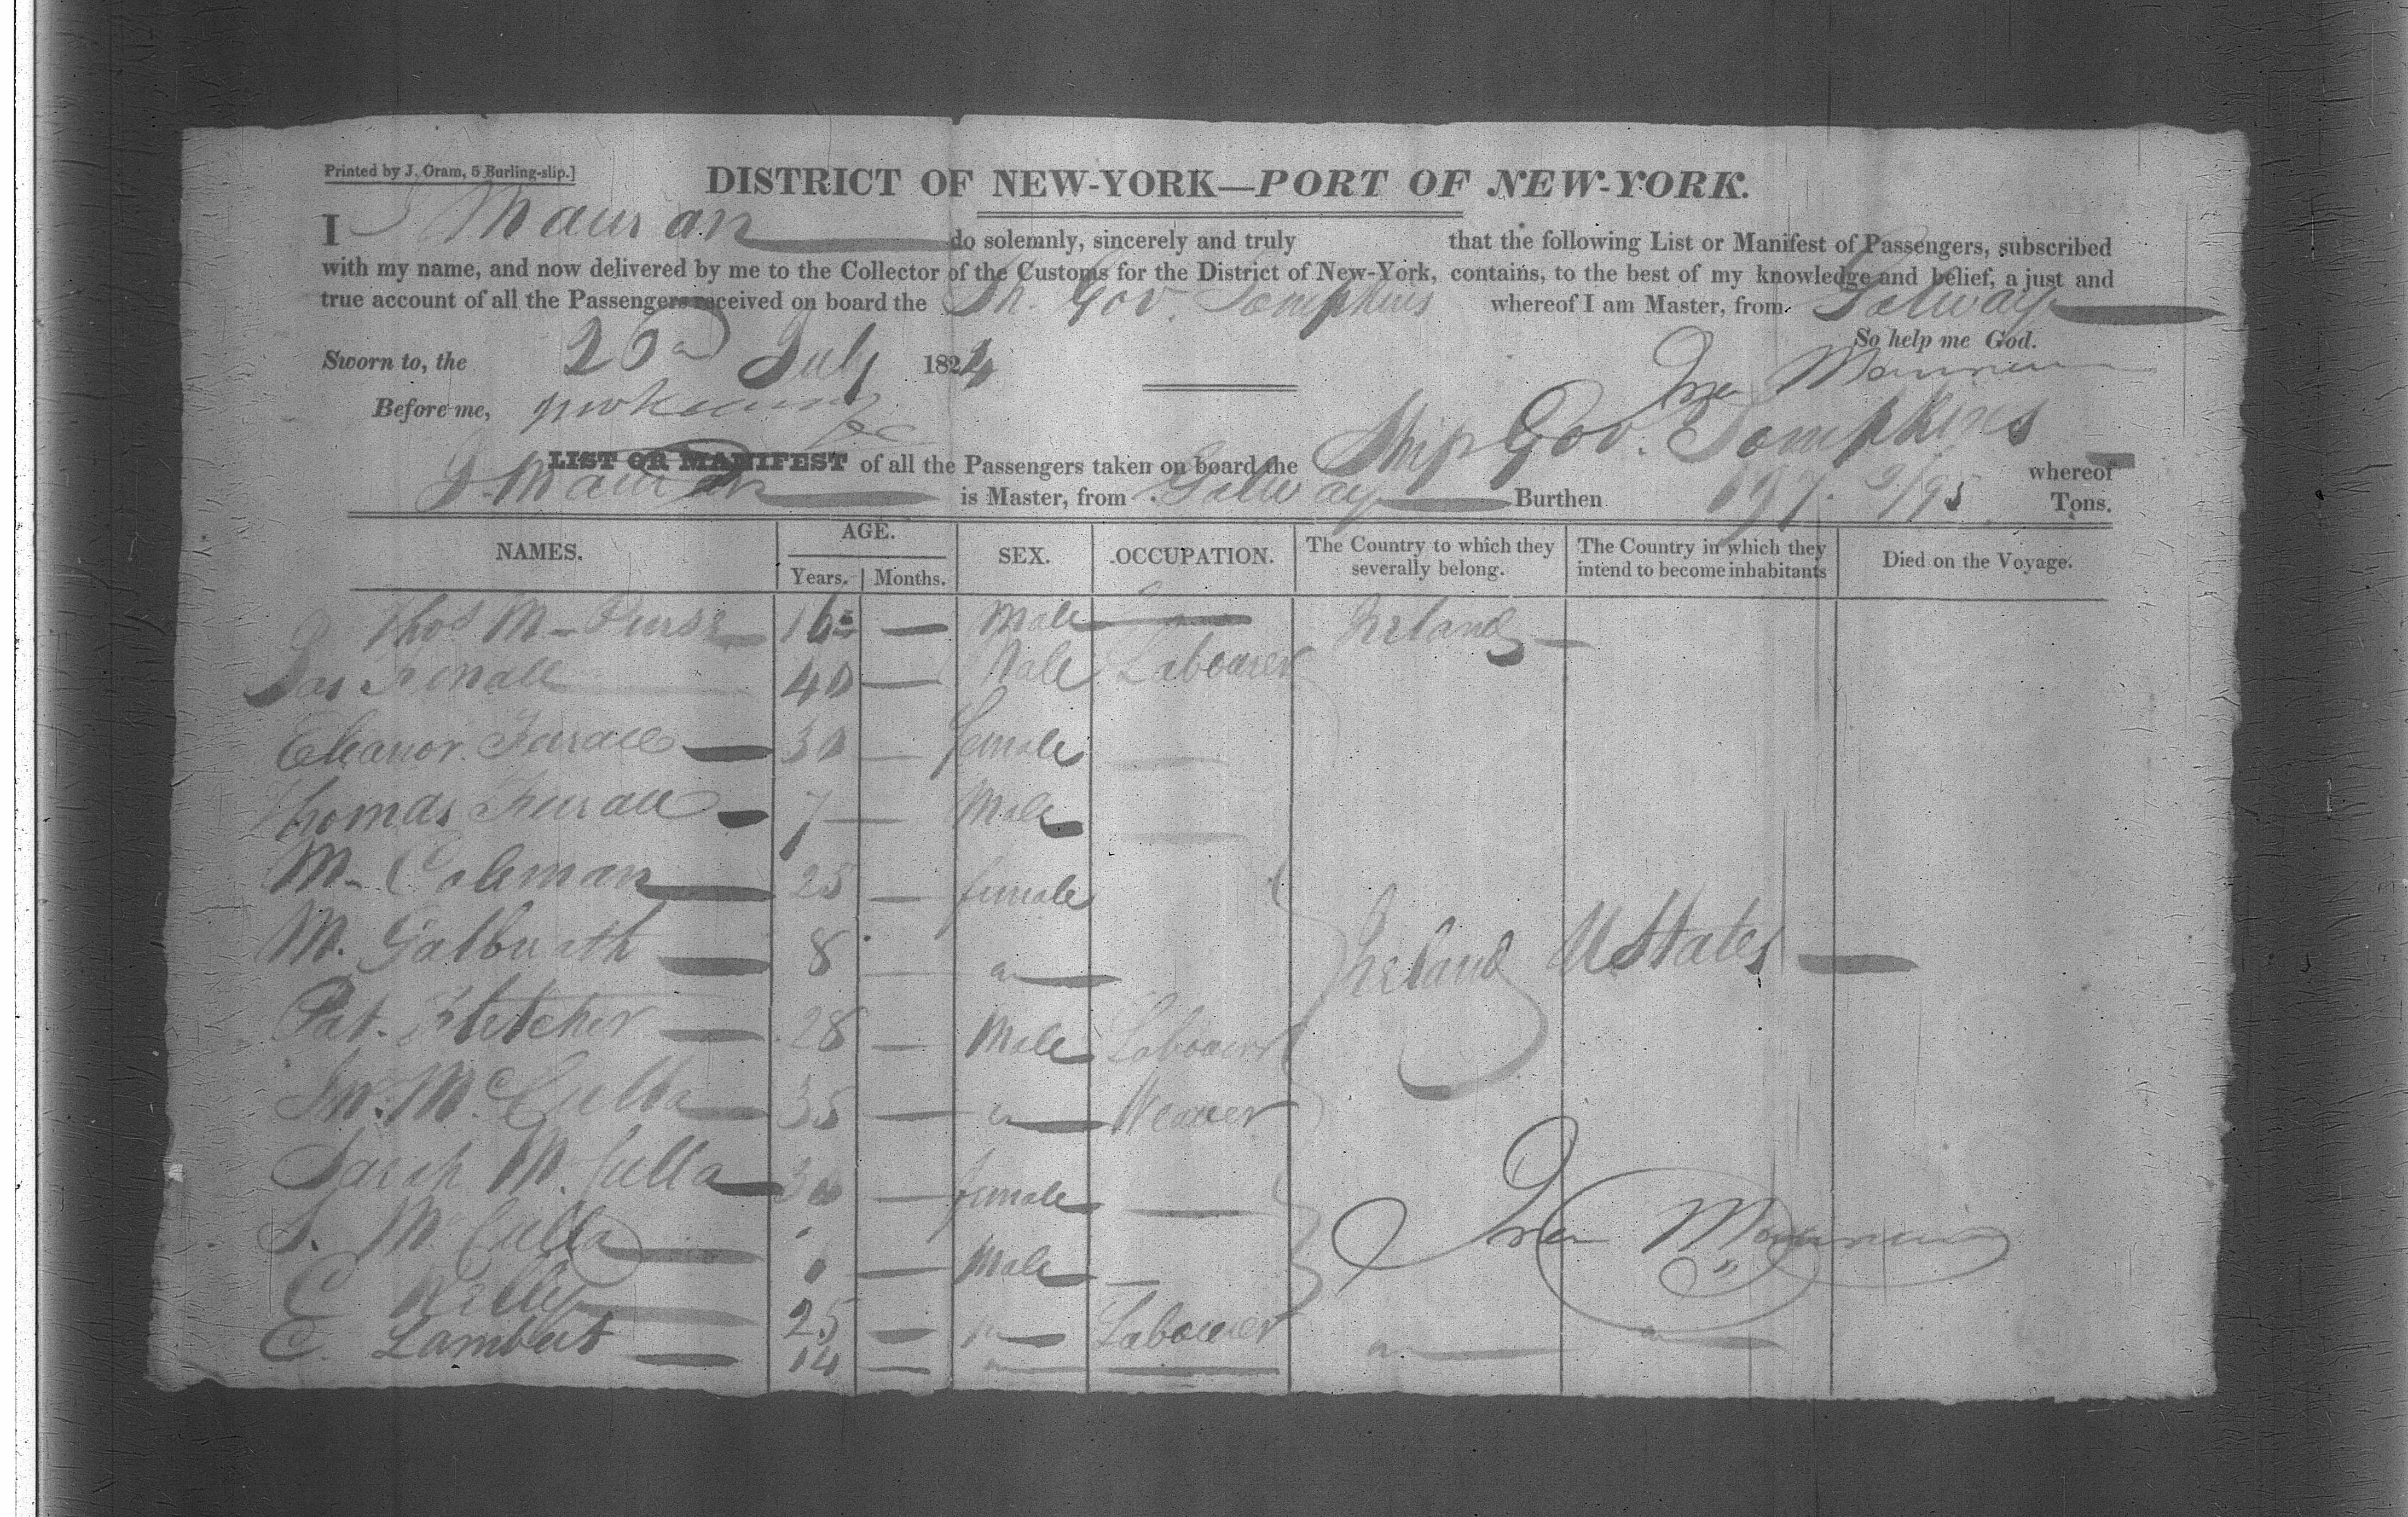 Printed by J. Oram, 5 Burling-slip.]
DISTRICT OF NEW-YORK—PORT OF NEW-YORK.
I Mauran do solemnly, sincerely and truly that the following List or Manifest of Passengers, subscribed
with my name, and now delivered by me to the Collector of the Customs for the District of New-York, contains, to the best of my knowledge and belief, a just and
true account of all the Passengers received on board the Sh. Gov. Tompkins whereof I am Master, from Galway
So help me God.
Sworn to, the 26 July 1824
Before me,
LIST OR MANIFEST of all the Passengers taken on board the Ship Gov. Tompkins whereof
J. Mauran is Master, from Galway Burthen 197. 9/95 Tons.
NAMES. AGE. Years. Months. SEX. OCCUPATION. The Country to which they severally belong. The Country in which they intend to become inhabitants Died on the Voyage.
Thos M- 16 — Male — Ireland —
40 — Male Labourer
Eleanor 30 — female —
Thomas 7 — Male —
M- Coleman 25 — female
M. Galbrath 8 — "
Pat. Fletcher 28 — Male Labourer Ireland U States —
Jn. Mc Culla 35 — " Weaver
Sarah M. Culla 30 — female —
S. M Culla — Male —
C Kelly 25 — " Labourer
C. Lambert 14 — " — " "